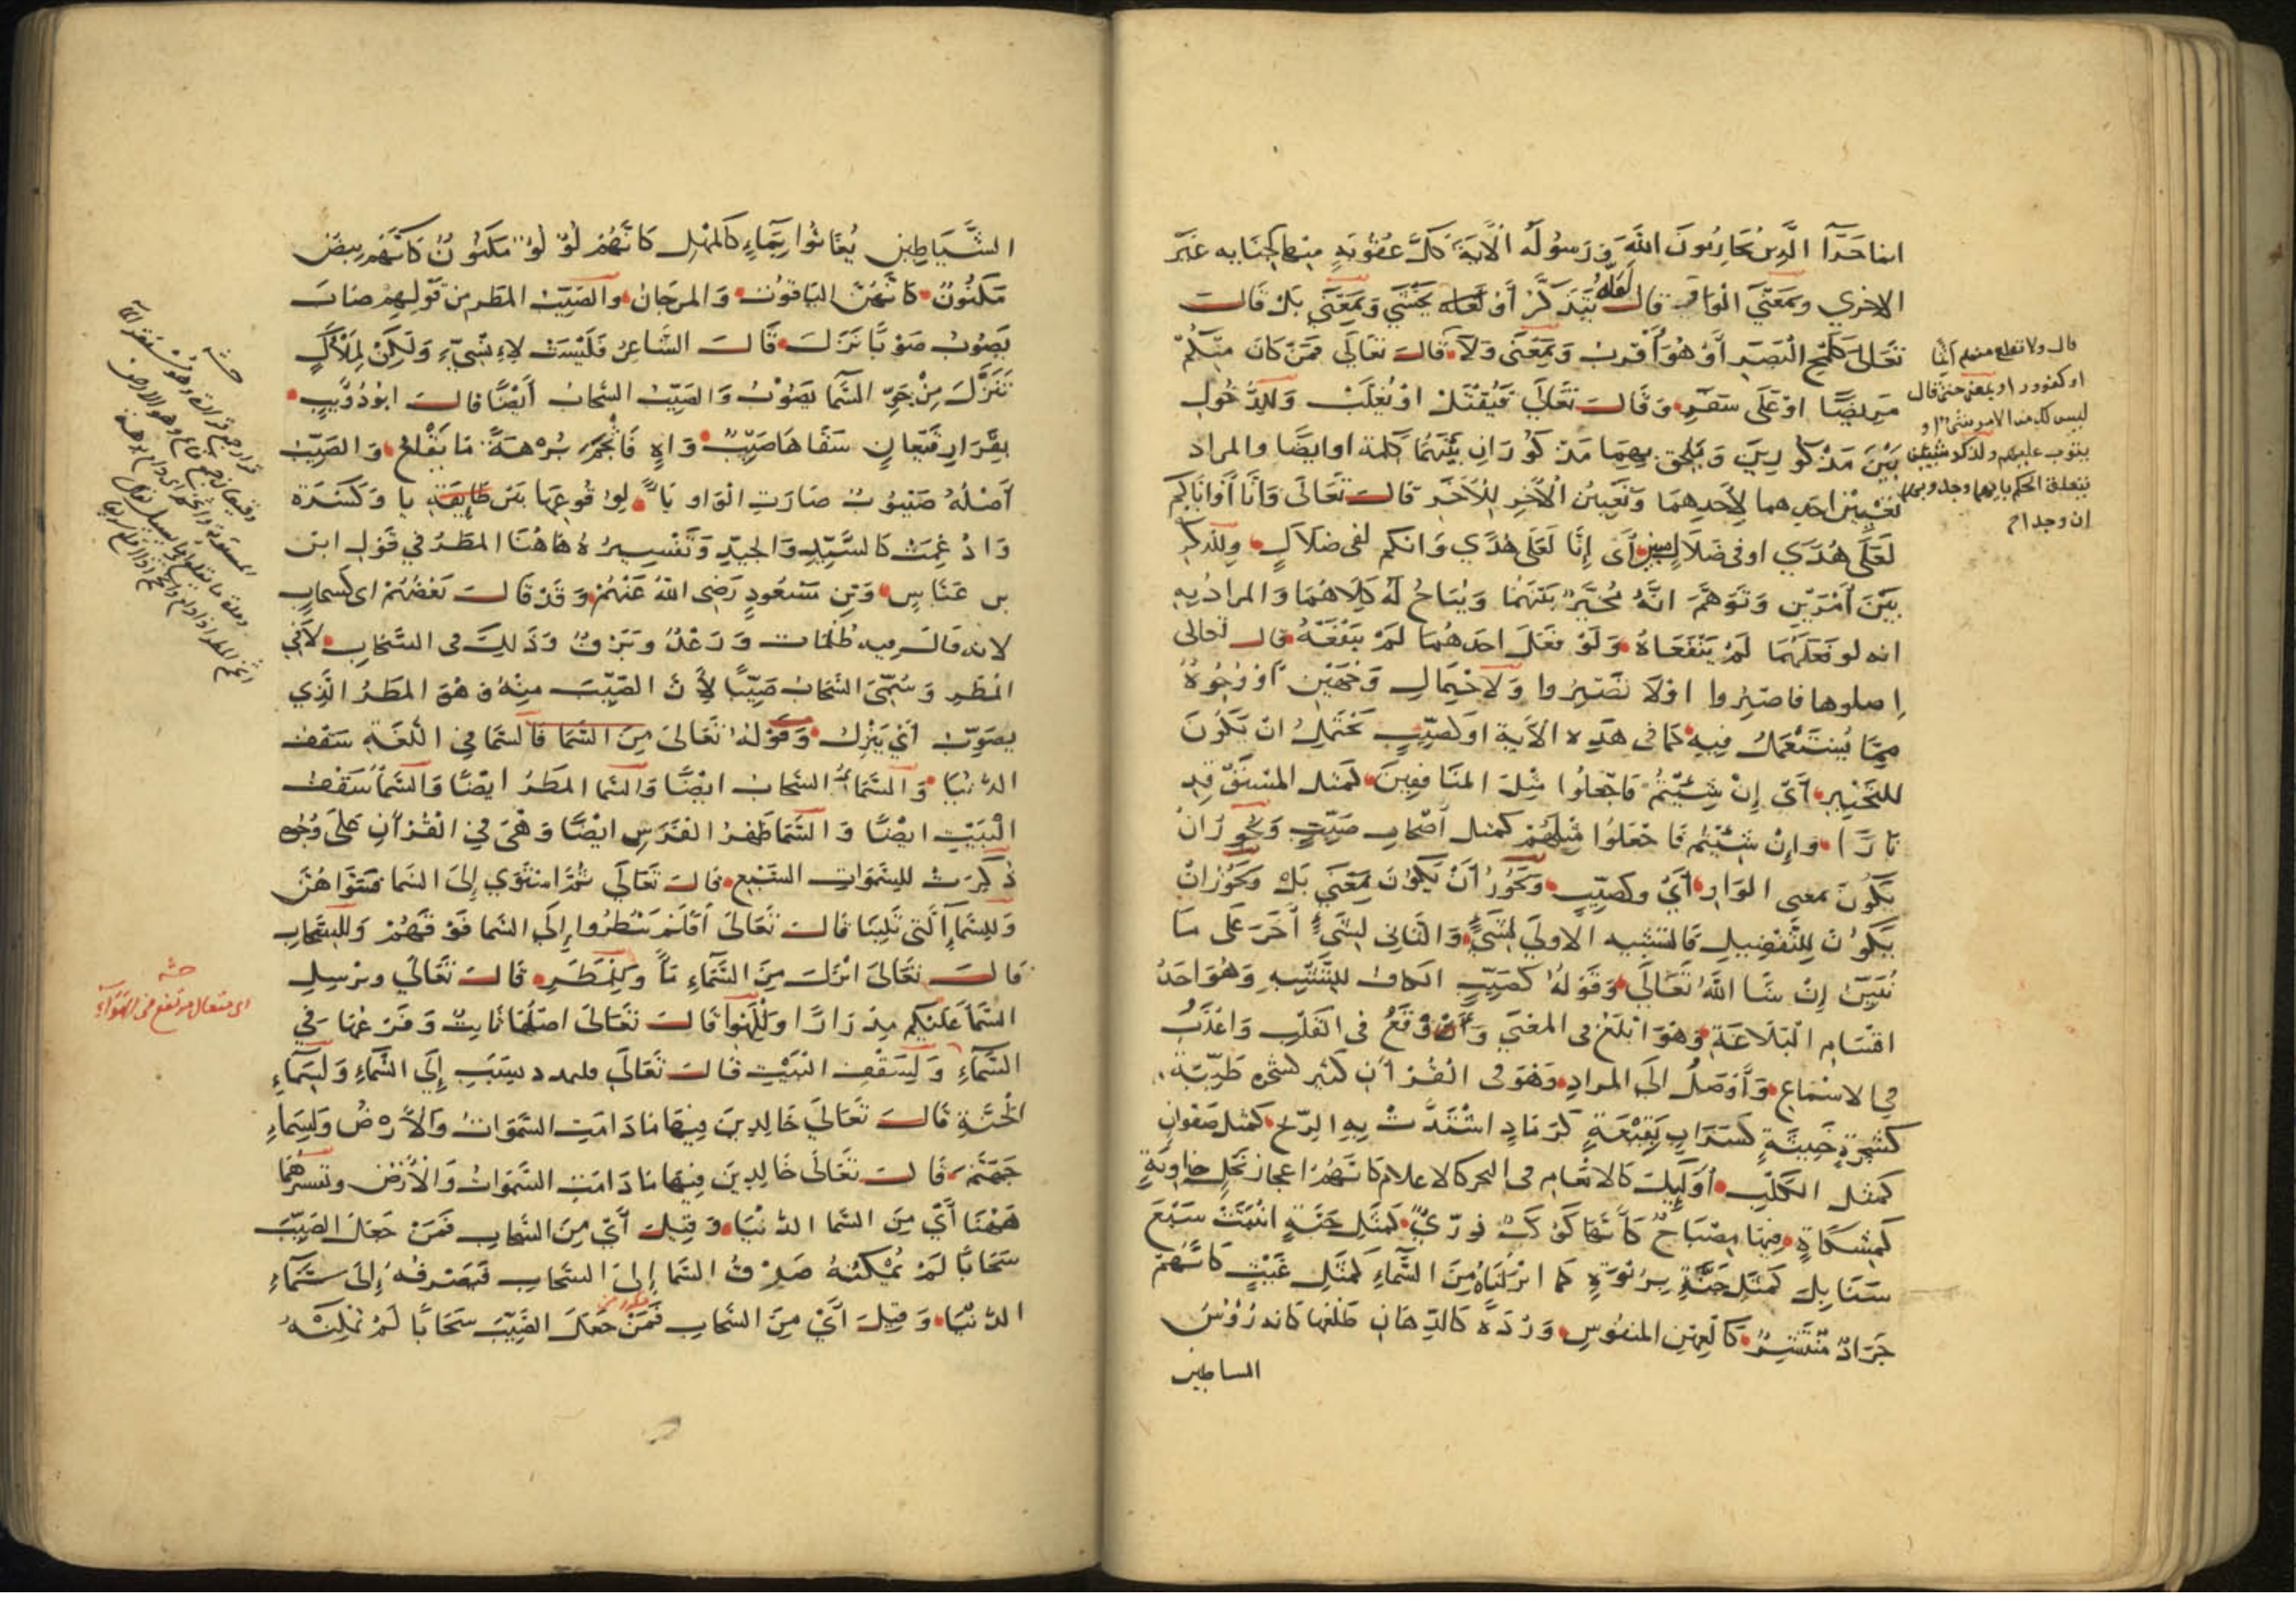 انما جزآ الَّذِين يُحَارِبُونَ اللَّهَ وَرَسُولَهُ اَلْآيَةَ كَلَّ عُقُوبَةٍ منها كجنابه غَيْر
الاخري وبمَعْنَي الْوَاو قَالَ لَعَلَّهُ يَتَذَكَّرُ أَوْ يَخْشَي وَبِمَعْنَي بَلْ قَالَ
تَعَالَى كَلَمْحِ الْبَصَرِ أَوْ هُوَ أَقْرَبُ وَبِمَعْنَى وَلَا قَالَ تَعَالَي فَمَنْ كَانَ مِنْكُمْ
مَرِيضًا اوْ عَلَى سَفَرٍ وَقَالَ تَعَالَي فَيُقْتَلْ اوْ يُغْلَبْ وَلِلدُّخُولِ
بَيْنَ مَذْكُورَيْنِ وَيَلْحَق بِهِمَا مَذْكُورَانِ بَيْنَهُمَا كَلِمَة او ايضًا والمراد
تَعْيِيْن احدهما لِأَحَدِهِمَا وَتَعْيِينُ الْآخَرِ لِلْآخَرِ قَالَ تَعَالَى وَأَنَّا أَوْ اِيَّاكُمْ
لَعَلَي هُدًي او في ضَلَالٍ مبين أَي إِنَّا لَعَلَى هُدًي وَانكم لفي ضلالٍ وللذكر
بَيْنَ أَمْرَيْنِ وَتَوَهَّمَ انَّهُ مُخَيَّرٌ بَيْنَهُمَا وَيُبَاحُ لَهُ كِلَاهُمَا وَالمراد بِهِ
انه لو فَعَلَهُمَا لَمْ يَنْفَعَاهُ وَلَوْ فَعَلَ احدَهُمَا لَمْ يَنْفَعْهُ قال تعالى
اصلوها فاصبِرُوا اوْ لَا تَصْبِرُوا وَلِاحْتِمَالِ وَجْهَيْنِ أَوْ وُجُوهٌ
مِمَّا يُسْتَعْمَلُ فِيهِ كَمَا في هَذِهِ الْآيَةِ او كَصَيِّبٍ يَحْتَمِلُ انْ يَكُونَ
للتَّخْيِيرِ أَيْ إِنْ شِئْتُمْ فَاجْعَلُوا مِثْلَ المنَافِقِينَ كمثل المُسْتَوْقِدِ
نَارًا وَإِنْ شِئْتُمْ فَاجْعَلُوا مِثْلَهُمْ كمثل أَصْحَابِ صَيِّبٍ وَيَجُوزُ انْ
يَكُونَ بمعنى الوَاوِ أَيْ وكصَيِّبٍ وَيَجُوزُ أَنْ يَكُونَ بِمَعْنَي بَلْ وَيَجُوزُ انْ
يَكُونَ لِلتَّفْضِيلِ فَالتشبيه الْأَولَي لِشَيْءٍ وَالثَّانِي لِشَيْءٍ آخَرَ عَلَى مَا
نُبَيِّنُ إِنْ شَا اللَّهُ تَعَالَي وَقَوْلُهُ كَصَيِّبٍ الكاف للتَّشْبِيهِ وَهُوَ احَدُ
اقْسَامِ الْبَلَاغَةِ وَهُوَ ابْلَغُ في المعْنَي وَأَوْقَعُ في الْقَلْبِ وَاعْذَبُ
في الاسْمَاعِ وَأَوْصَلُ الَى المرادِ وَهُوَ في الْقُرْآنِ كثير كشجره طَيِّبَة
كَشَجَرَةٍ خَبِيثَةٍ كَسَرَابٍ بِقِيعَةٍ كَرَمَادٍ اشْتَدَّتْ بِهِ الرِّيح كمثل صَفْوَانٍ
كمَثَل الكَلْبِ أُولَئِكَ كَالانْعَامِ في البحر كالاعلام كَانَهُمْ اعجاز نَخْلٍ خاوِيَةٍ
كمِشْكَاةٍ فِيهَا مِصْبَاحٌ كَأَنَّهَا كَوْكَبٌ دُرِّيٌّ كَمَثَلِ حَبَّةٍ انْبَتَتْ سَبْعَ
سَنَابِلَ كَمَثَلِ جَنَّةٍ بِرَبْوَةٍ كَمَا انْزَلْنَاهُ مِنَ السَّمَاءِ كَمَثَلِ غَيْثٍ كَانَّهُمْ
جَرَادٌ مُنْتَشِرٌ كَالْعِهْنِ المنفوش وَرْدَةً كَالدِّهَانِ طَلْعُهَا كَانه رُؤُسُ
الشياطين
قال ولا تطع منهم آثما
او كفورا او بمعنى حتي قال
ليس لك من الامر شيء او
يتوب عليهم
ان وجدا
الشَّيَاطِينِ يُغَاثُوا بِمَاءٍ كَالمُهْلِ كَانَّهُمْ لُؤْلُؤٌ مَكْنُونٌ كَأَنَّهُنَّ بيض
مَكْنُونٌ كَأَنَّهُنَّ اليَاقُوتُ وَالمرجَانُ وَالصَّيِّبُ المطر مِنْ قَوْلِهِمْ صَابَ
يَصُوبُ صَوْبًا نَزَلَ قَالَ الشَّاعِرُ فَلَيْسَتْ لِإنْسِيٍّ وَلَكِنْ لِمَلْأَكٍ
تَنَزَّلَ مِنْ جَوِّ السَّمَا يَصُوْبُ وَالصَّيِّبُ السَّحَابُ أَيْضًا قَالَ ابُو ذُؤَيْبٍ
بِقَرَارِ قِيعَانٍ سَقَاهَا صَيِّبٌ وَاهٍ فَأَثْجَمَ بُرْهَةً مَا يَقْلَعُ وَالصَّيِّبُ
أَصْلُهُ صَيْبُوبٌ صَارَتِ الْوَاو يَاءً لوُقُوعِهَا بَيْنَ يا وَكَسْرَة
وَادْغِمَتْ كالسَّيِّدِ وَالجيِّدِ وَتَفْسِيرُهُ هَاهُنَا المطَرُ في قَوْلِ ابن
عَبَّاسٍ وَبْنِ مَسْعُودٍ رَضِيَ اللَّهُ عَنْهُمْ وَقَدْ قَالَ بَعْضُهُمْ اي كسحابٍ
لانه قَالَ فيه ظُلُمَات وَرَعْدٌ وَبَرْقٌ وَذَلِكَ في السَّحَابِ لا في
الْمَطَرِ وَسُمِّيَ السَّحَابُ صَيِّبًا لِأَنَّ الصَّيِّبَ مِنْهُ وَهُوَ المطَرُ الَّذِي
يصَوِّبُ أَيْ يَنْزِلُ وَقَوْلُهُ تَعَالَى مِنَ السَّمَا فَالسَّمَا في اللُّغَةِ سَقْفُ
الدُّنْيَا وَالسَّمَا السَّحَابُ ايْضًا وَالسَّمَا المطَرُ ايْضًا وَالسَّمَا سَقْفُ
الْبَيْتِ ايْضًا وَالسَّمَا ظَهْرُ الفَرَسِ ايْضًا وَهْيَ فِي الْقُرْآنِ عَلَى وُجُوه
ذُكِرَتْ للسَّمَوَاتِ السَّبْعِ قَالَ تَعَالَي ثُمَّ اسْتَوَي إِلَى السَّمَا فَسَوَّاهُنَّ
وَلِلسَّمَاءِ الَّتِي تَلِينَا قَالَ تَعَالَى أَفَلَمْ يَنْظُرُوا إِلَي السَّمَا فَوْقَهُمْ وَلِلسَّحَابِ
قَالَ تَعَالَى انْزَلَ مِنَ السَّمَاءِ مَاءً وَلِلْمَطَرِ قَالَ تَعَالَي يرْسِلِ
السَّمَا عَلَيْكُم مِدْرَارًا وَلِلْهَوَا قَالَ تَعَالَى اصْلُهَا ثَابِتٌ وَفَرْعُهَا فِي
السَّمَاءِ وَلِسَقْفِ البَيْتِ قَالَ تَعَالَي فليمدد بِسَبَبٍ إِلَي السَّمَاءِ وَلِسَمَاءِ
الجَنَّةِ قَالَ تَعَالَيَ خَالِدِينَ فِيهَا مَا دَامَتِ السَّمَوَاتُ وَالْأَرْضُ وَلِسَمَاءِ
جَهَنَّمَ قَالَ تَعَالَى خَالِدِينَ فِيهَا مَا دَامَتِ السَّمَوَاتُ وَالْأَرْضُ وتفسيرها
هَهُنَا أَيْ مِنَ السَّمَا الدُّنْيَا وَقِيلَ أَيْ مِنَ السَّحَابِ فَمَنْ جَعَلَ الصَّيِّبَ
سَحَابًا لَمْ يُمْكِنُهُ صَرْفُ السَّمَا إِلَى السَّحَابِ فَيَصْرِفُهُ إِلَى سَمَاءِ
الدُّنْيَا وَقِيلَ أَيْ مِنَ السَّحَابِ فَمَنْ جَعَلَ الصَّيِّبَ سَحَابًا لَمْ يُمْكِنْهُ